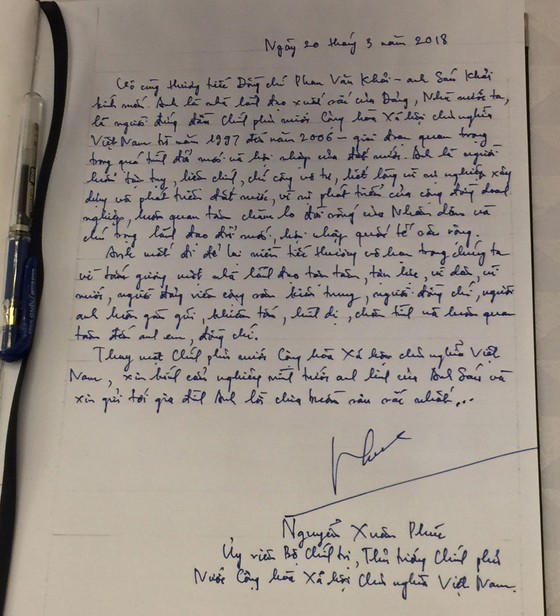 Ngày 20 tháng 3 năm 2018
Vô cùng thương tiếc Đồng chí Phan Văn Khải - anh Sáu Khải
kính mến. Anh là nhà lãnh đạo xuất sắc của Đảng, Nhà nước ta,
là người đứng đầu Chính phủ nước Cộng hòa Xã hội chủ nghĩa
Việt Nam từ năm 1997 đến năm 2006 - giai đoạn quan trọng
trong quá trình đổi mới và hội nhập của đất nước. Anh là người
luôn tận tụy, liêm chính, chí công vô tư, hết lòng vì sự nghiệp xây
dựng và phát triển đất nước, vì sự phát triển của cộng đồng doanh
nghiệp, luôn quan tâm chăm lo đời sống của Nhân dân và
chú trọng lãnh đạo đổi mới, hội nhập quốc tế sâu rộng.
Anh mất đi để lại niềm tiếc thương vô hạn trong chúng ta
về tấm gương một nhà lãnh đạo toàn tâm, tận lực, vì dân, vì
nước, người đảng viên cộng sản kiên trung, người đồng chí, người
anh luôn gần gũi, khiêm tốn, bình dị, chân tình và luôn quan
tâm đến anh em, đồng chí.
Thay mặt Chính phủ nước Cộng hòa Xã hội chủ nghĩa Việt
Nam, xin kính cẩn nghiêng mình trước anh linh của Anh Sáu và
xin gửi tới gia đình Anh lời chia buồn sâu sắc nhất...
Nguyễn Xuân Phúc
Ủy viên Bộ Chính trị, Thủ tướng Chính phủ
Nước Cộng hòa Xã hội Chủ nghĩa Việt Nam.